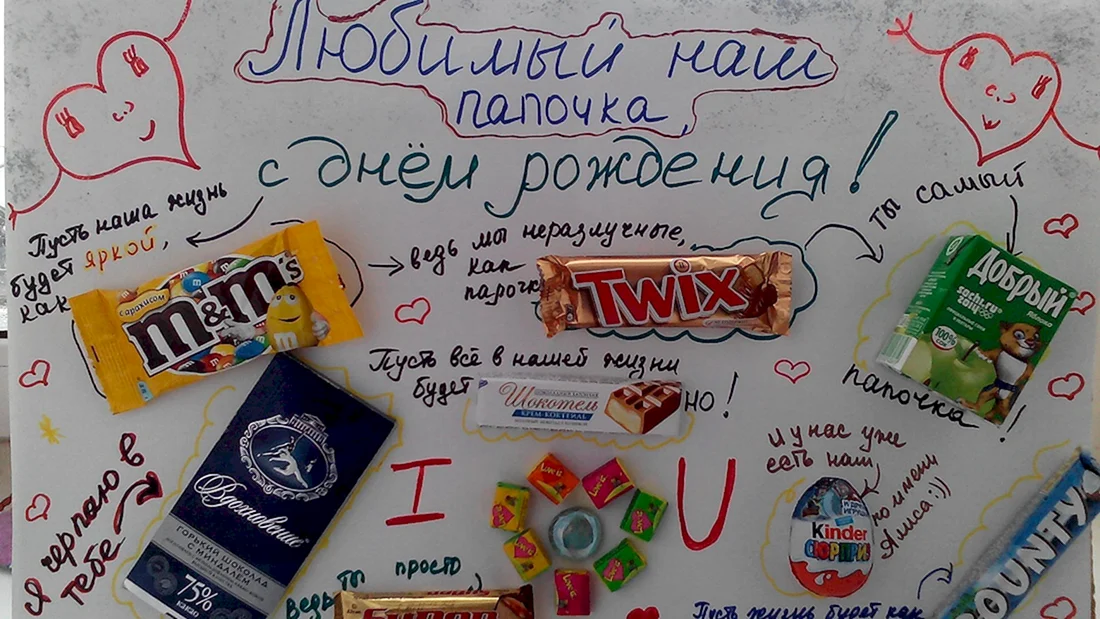 Любимый наш
папочка,
с днём рождения!
Пусть наша жизнь
будет яркой,
как
с арахисом
m&m's
ведь мы неразлучные,
как
парочка
TWIX
ты самый
Добрый
яблоко
sochi.ru
2014
100%
папочка!
Пусть всё в нашей жизни
будет
Шокотель
КРЕМ-КОКТЕЙЛЬ
но!
Я черпаю в
тебе
Вдохновение
ГОРЬКИЙ ШОКОЛАД
С МИНДАЛЕМ
75%
какао
I
Love is
U
И у нас уже
есть наш
Kinder
СЮРПРИЗ
по имени
Алиса:))
ты просто
ведь
Супер
Пусть жизнь будет как
BOUNTY